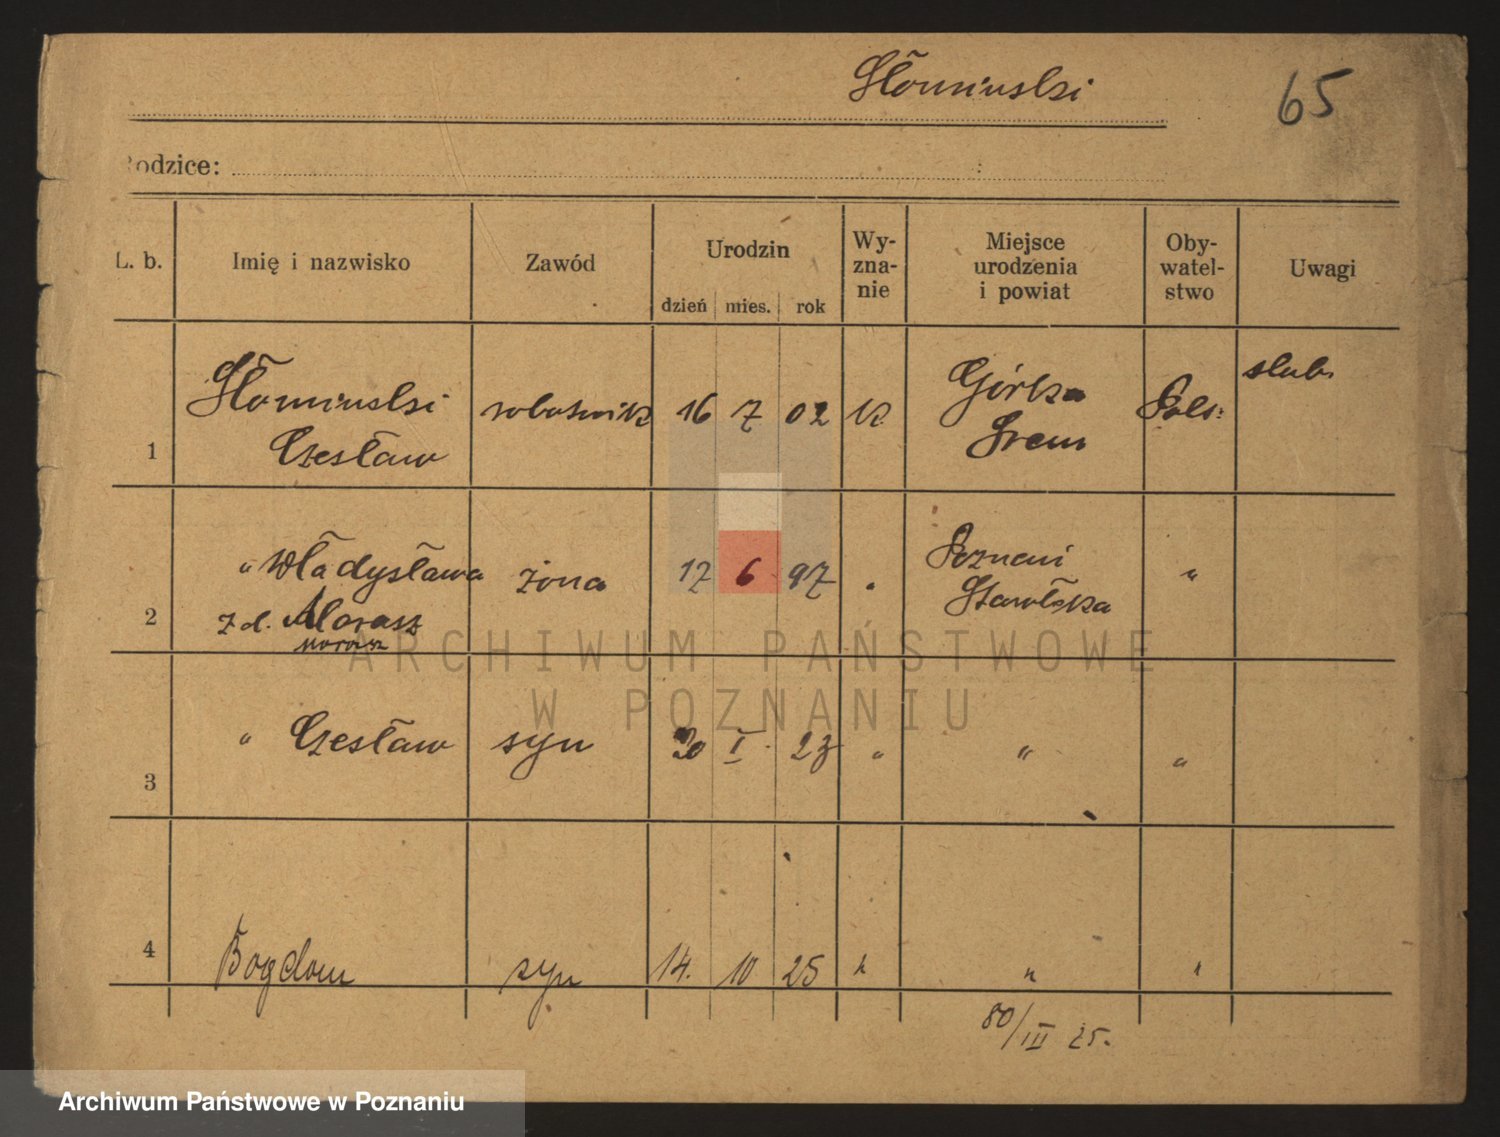 Słomiński
65
Rodzice:
L. b. Imię i nazwisko Zawód Urodzin dzień mies. rok Wy-
zna-
nie Miejsce
urodzenia
i powiat Oby-
watel-
stwo Uwagi
1 Słomiński robotnik 16 7 02 k Górka Pols: ślub.
Czesław Śrem
2 " Władysława żona 17 6 97 " Poznań "
z d. Morasz
morasz
3 " Czesław syn 30 I 23 " " "
4 Bogdan syn 14. 10 25 " " "
80/III 25.
ARCHIWUM PAŃSTWOWE
W POZNANIU
Archiwum Państwowe w Poznaniu